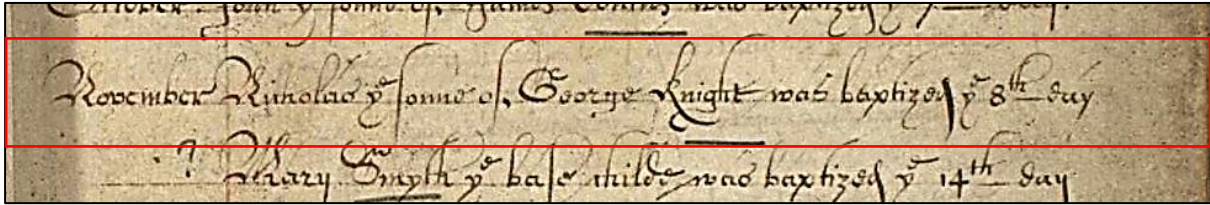 October John yᵉ sonne of James was baptized yᵉ day.
November Nicholas yᵉ sonne of George Knight was baptized yᵉ 8th day
Mary Smyth yᵉ base childe was baptized yᵉ 14th day